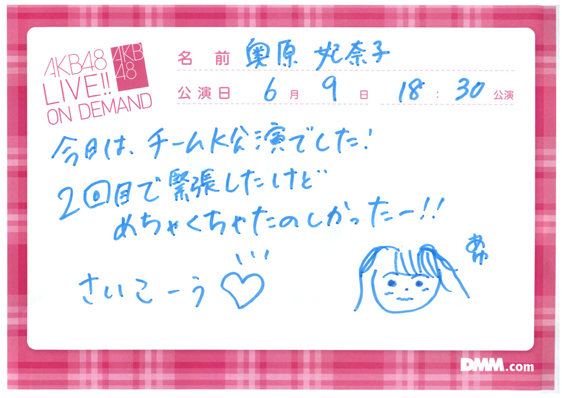 AKB48
LIVE!!
ON DEMAND
AKB
48
名前 奥原 妃奈子
公演日 6月9日 18:30公演
今日は、チームK公演でした!
2回目で緊張したけど
めちゃくちゃたのしかったー!!
さいこーう♡
DMM.com